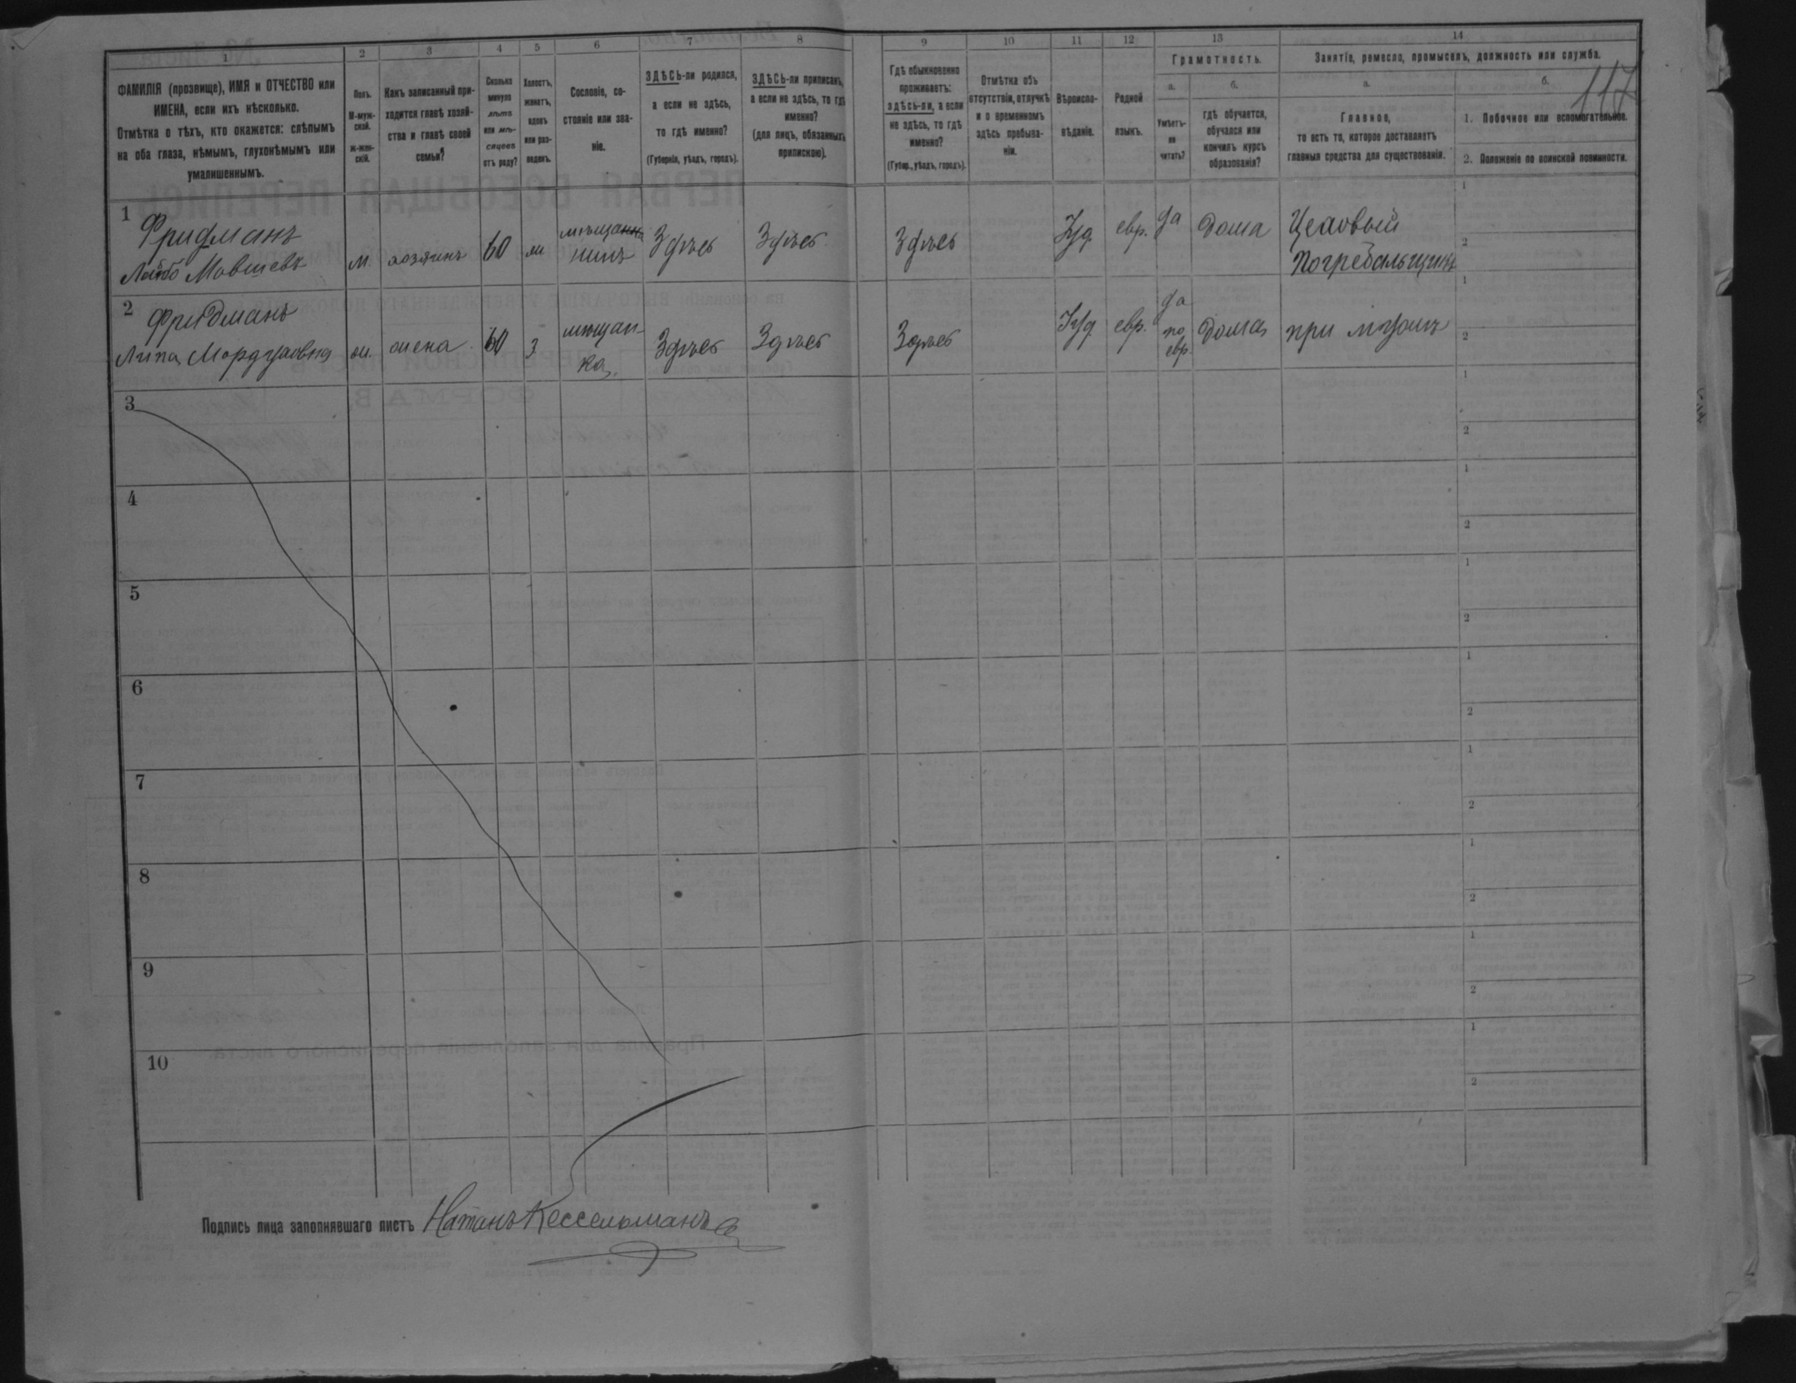 117
1 2 3 4 5 6 7 8 9 10 11 12 13 14
ФАМИЛІЯ (прозвище), ИМЯ и ОТЧЕСТВО или
ИМЕНА, если ихъ нѣсколько.
Отмѣтка о тѣхъ, кто окажется: слѣпымъ
на оба глаза, нѣмымъ, глухонѣмымъ или
умалишеннымъ.
Полъ.
М-муж-
ской.
ж-жен-
скій.
Какъ записанный при-
ходится главѣ хозяй-
ства и главѣ своей
семьи?
Сколько
минуло
лѣтъ
или мѣ-
сяцевъ
отъ роду?
Холостъ,
женатъ,
вдовъ
или раз-
веденъ.
Сословіе, со-
стояніе или зва-
ніе.
ЗДѢСЬ-ли родился,
а если не здѣсь,
то гдѣ именно?
(Губернія, уѣздъ, городъ).
ЗДѢСЬ-ли приписанъ,
а если не здѣсь, то гдѣ
именно?
(для лицъ, обязанныхъ
припискою).
Гдѣ обыкновенно
проживаетъ:
здѣсь-ли, а если
не здѣсь, то гдѣ
именно?
(Губер., уѣздъ, городъ).
Отмѣтка объ
отсутствіи, отлучкѣ
и о временномъ
здѣсь пребыва-
ніи.
Вѣроиспо-
вѣданіе.
Родной
языкъ.
Грамотность.
а.
Умѣетъ-
ли
читать?
б.
гдѣ обучается,
обучался или
кончилъ курсъ
образованія?
Занятіе, ремесло, промыселъ, должность или служба.
а.
Главное,
то есть то, которое доставляетъ
главныя средства для существованія.
б.
1. Побочное или вспомогательное.
2. Положеніе по воинской повинности.
1 Фридманъ
Лейбо Мовшевъ м хозяинъ 60 ж мѣщани
нинъ Здѣсь Здѣсь Здѣсь Іуд евр. да Дома Цеховый
Погребальщикъ
2 Фридманъ
Липа Мордуховна ж. жена 60 з мѣщан-
ка. Здѣсь Здѣсь Здѣсь Іуд евр. да
по
евр Дома при мужѣ
3
4
5
6
7
8
9
10
Подпись лица заполнявшаго листъ Натанъ Кессельманъ